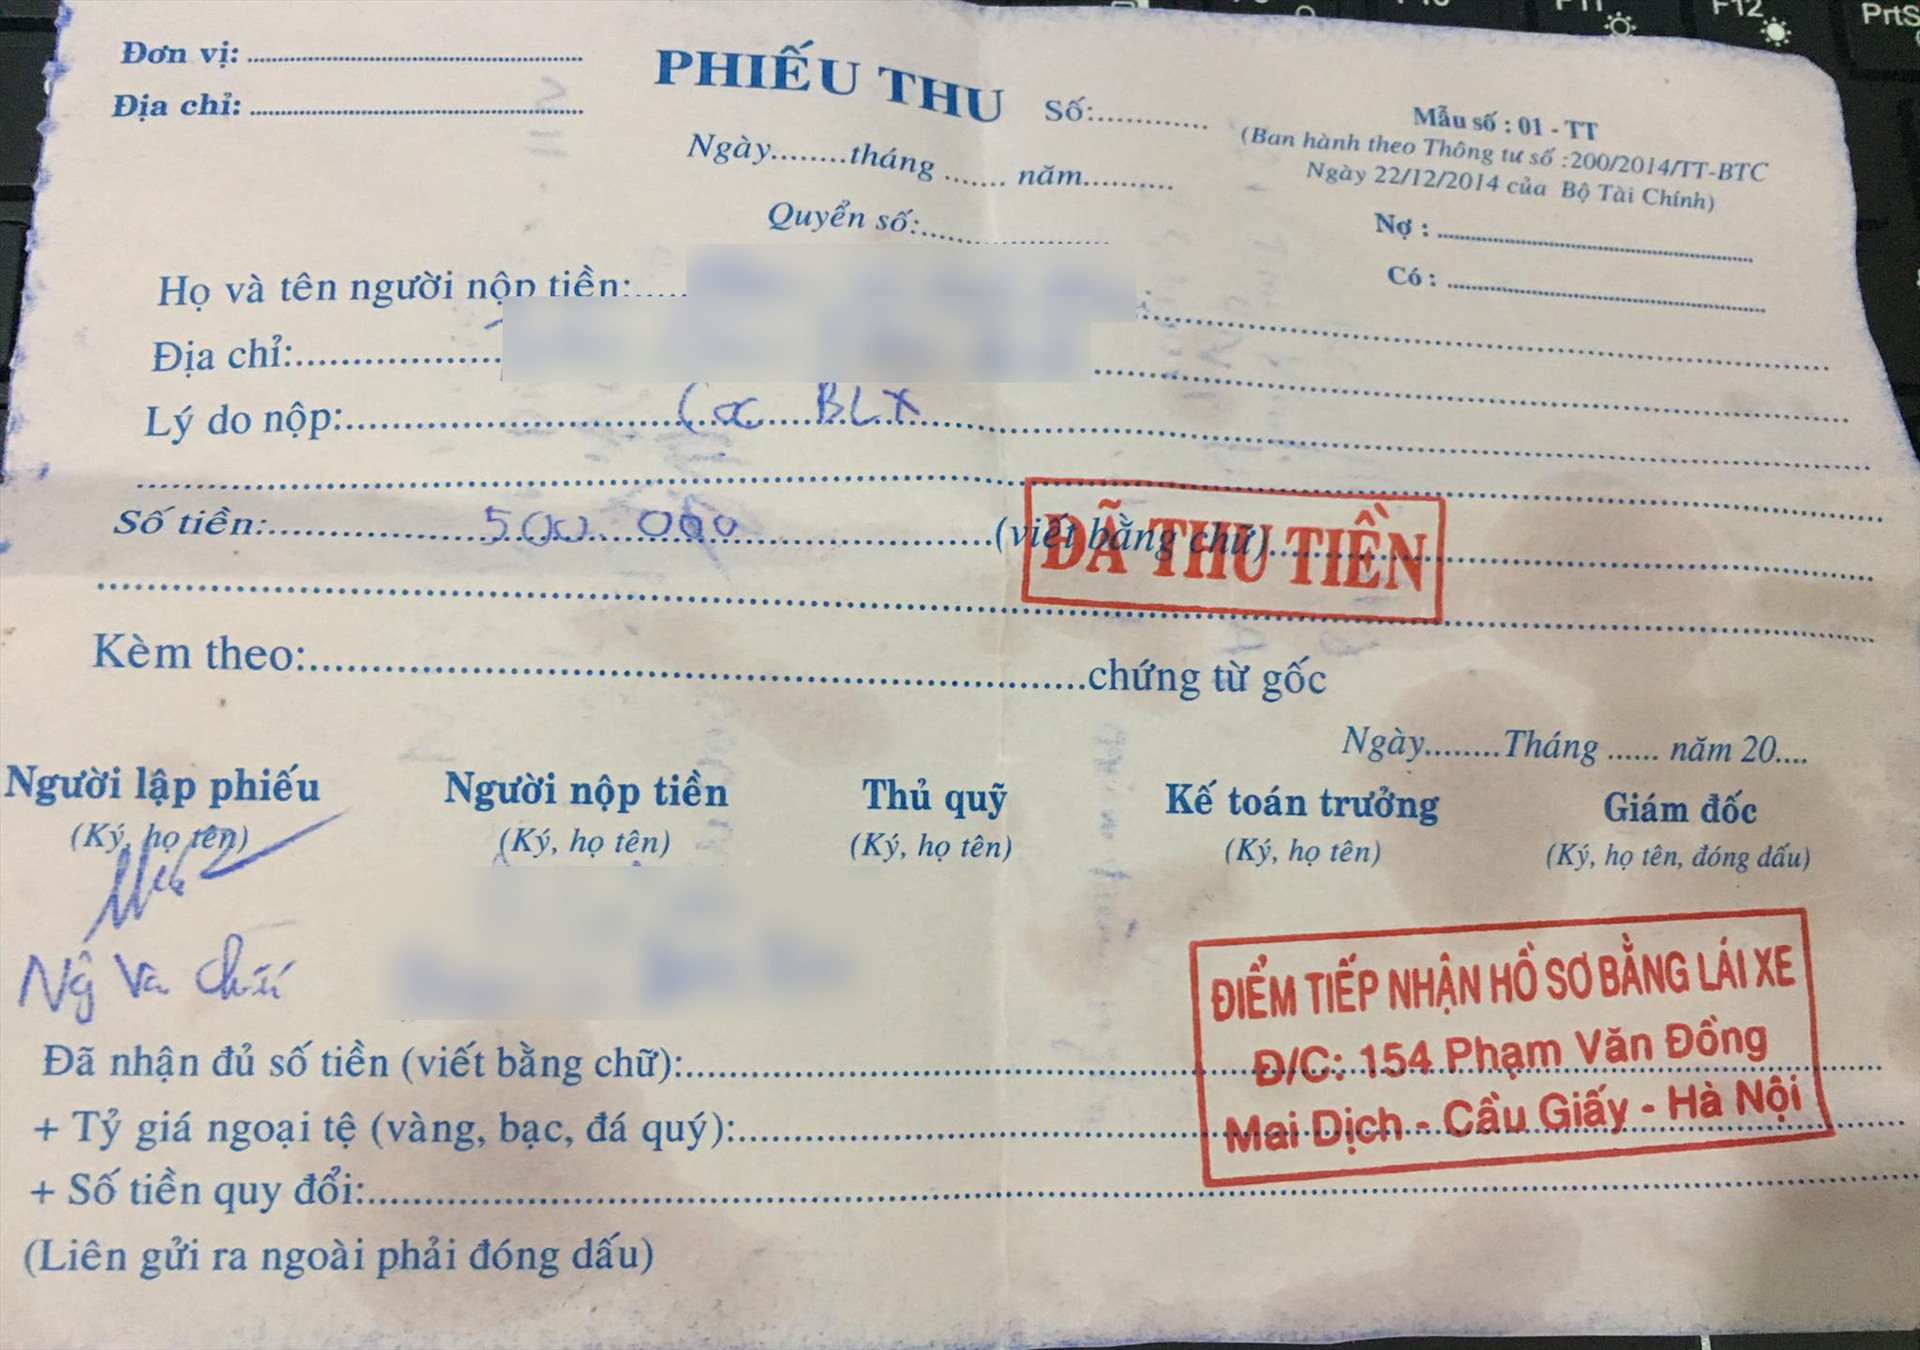 Đơn vị:
Địa chỉ:
PHIẾU THU
Số:
Ngày........tháng ....... năm..........
Quyển số:
Mẫu số : 01 - TT
(Ban hành theo Thông tư số :200/2014/TT-BTC
Ngày 22/12/2014 của Bộ Tài Chính)
Nợ :
Có :
Họ và tên người nộp tiền:
Địa chỉ:
Lý do nộp: Cọc BLX
Số tiền: 500.000 (viết bằng chữ)
ĐÃ THU TIỀN
Kèm theo: chứng từ gốc
Ngày........Tháng ...... năm 20....
Người lập phiếu Người nộp tiền Thủ quỹ Kế toán trưởng Giám đốc
(Ký, họ tên) (Ký, họ tên) (Ký, họ tên) (Ký, họ tên) (Ký, họ tên, đóng dấu)
ĐIỂM TIẾP NHẬN HỒ SƠ BẰNG LÁI XE
Đ/C: 154 Phạm Văn Đồng
Mai Dịch - Cầu Giấy - Hà Nội
Đã nhận đủ số tiền (viết bằng chữ):
+ Tỷ giá ngoại tệ (vàng, bạc, đá quý):
+ Số tiền quy đổi:
(Liên gửi ra ngoài phải đóng dấu)
F12
PrtS